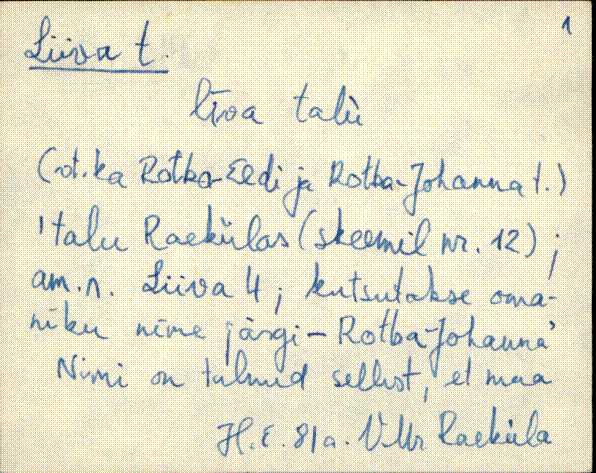 1
Liiva t.
līva talù
(vt. ka Rotba-Eedi ja Rotba-Johanna t.)
'talu Raekülas (skeemil nr. 12);
am. n. Liiva 4; kutsutakse oma-
niku nime järgi - Rotba-Johanna'
Nimi on tulnud sellest, et maa
H. E. 81 a. VMr Raeküla